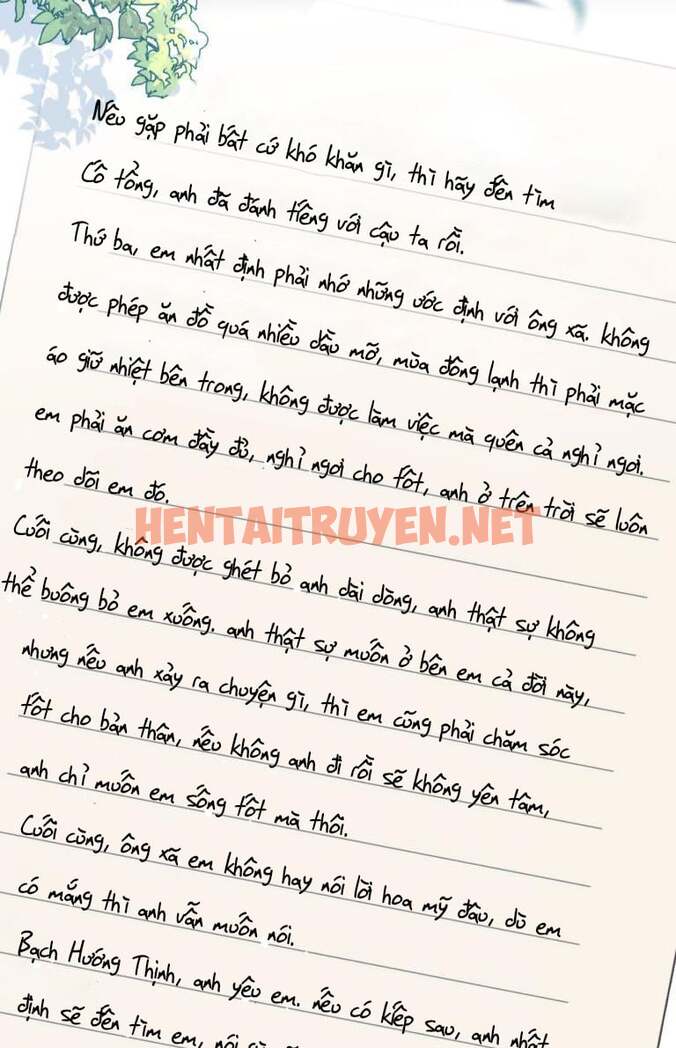 Nếu gặp phải bất cứ khó khăn gì, thì hãy đến tìm
Cô tổng, anh đã đánh tiếng với cậu ta rồi.
Thứ ba, em nhất định phải nhớ những ước định với ông xã. không
được phép ăn đồ quá nhiều dầu mỡ, mùa đông lạnh thì phải mặc
áo giữ nhiệt bên trong, không được làm việc mà quên cả nghỉ ngơi.
em phải ăn cơm đầy đủ, nghỉ ngơi cho tốt, anh ở trên trời sẽ luôn
theo dõi em đó.
HENTAITRUYEN.NET
Cuối cùng, không được ghét bỏ anh dài dòng, anh thật sự không
thể buông bỏ em xuống. anh thật sự muốn ở bên em cả đời này,
nhưng nếu anh xảy ra chuyện gì, thì em cũng phải chăm sóc
tốt cho bản thân, nếu không anh đi rồi sẽ không yên tâm,
anh chỉ muốn em sống tốt mà thôi.
Cuối cùng, ông xã em không hay nói lời hoa mỹ đâu, dù em
có mắng thì anh vẫn muốn nói.
Bạch Hướng Thịnh, anh yêu em. nếu có kiếp sau, anh nhất
định sẽ đến tìm em, nói